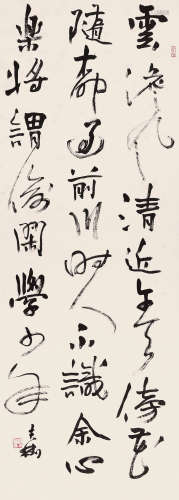 雲淡風清近午天傍花
隨柳過前川時人不識余心
樂將謂偷閑學少年